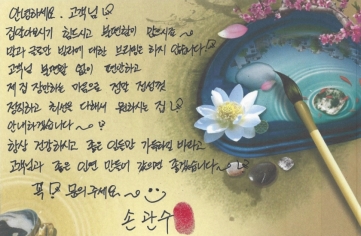 안녕하세요. 고객님!
집알아보시기 힘드시고 불편함이 많으시죠~
막과 국도만 빌라에 대한 브리핑은 하지 않습니다!
고객님 불편함 없이 편안하고
제 집 장만하는 마음으로 정말 정성껏
정직하고 최선을 다해서 원하시는 집
안내하겠습니다~
항상 건강하시고 좋은 일들만 가득하길 바라고
고객님과 좋은 인연 만들어 갔으면 좋겠습니다~
꼭! 문의주세요~
손관수